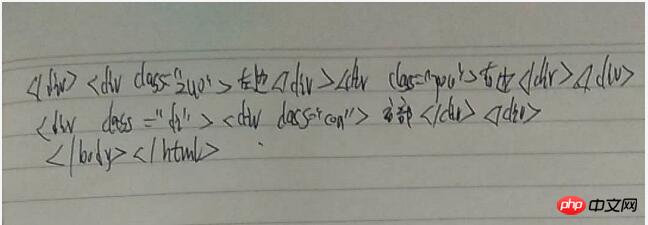 </div><div class="zuo">左边</div><div class="you">右边</div></div>
<div class="di"><div class="con">底部</div></div>
</body></html>
php 中文网